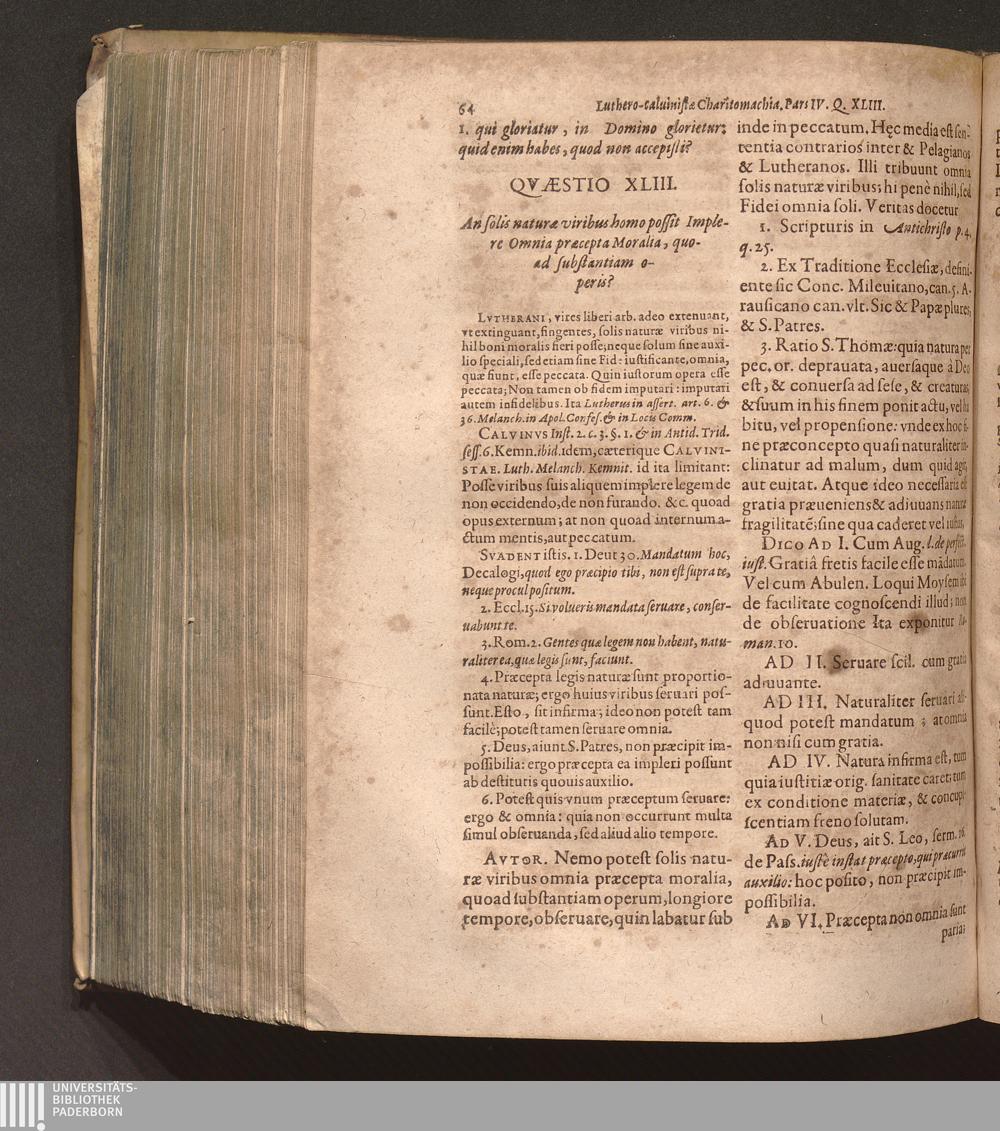 64 Luthero-caluinistæ Charitomachia. Pars IV. Q. XLIII.
1. qui gloriatur, in Domino glorietur;
quid enim habes, quod non accepisti?
QVÆSTIO XLIII.
An solis naturæ viribus homo possit Imple-
re Omnia præcepta Moralia, quo-
ad substantiam o-
peris?
LVTHERANI, vires liberi arb. adeo extenuant,
vt extinguant, fingentes, solis naturæ viribus ni-
hil boni moralis fieri posse; neque solum sine auxi-
lio speciali, sed etiam sine Fid: iustificante, omnia,
quæ fiunt, esse peccata. Quin iustorum opera esse
peccata; Non tamen ob fidem imputari: imputari
autem infidelibus. Ita Lutherus in assert. art. 6. &
36. Melanch. in Apol. Confes. & in Locis Comm.
CALVINVS Inst. 2. c. 3. §. 1. & in Antid. Trid.
sess. 6. Kemn. ibid. idem, cæterique CALVINI-
STAE. Luth. Melanch. Kemnit. id ita limitant:
Posse viribus suis aliquem implere legem de
non occidendo, de non furando. &c. quoad
opus externum; at non quoad internum a-
ctum mentis, aut peccatum.
SVADENT istis. 1. Deut 30. Mandatum hoc,
Decalogi, quod ego præcipio tibi, non est supra te,
neque procul positum.
2. Eccl. 15. Si volueris mandata seruare, conser-
uabunt te.
3. Rom. 2. Gentes quæ legem non habent, natu-
raliter ea, quæ legis sunt, faciunt.
4. Præcepta legis naturæ sunt proportio-
nata naturæ; ergo huius viribus seruari pos-
sunt. Esto, sit infirma; ideo non potest tam
facilè; potest tamen seruare omnia.
5. Deus, aiunt S. Patres, non præcipit im-
possibilia: ergo præcepta ea impleri possunt
ab destitutis quouis auxilio.
6. Potest quis vnum præceptum seruare:
ergo & omnia: quia non occurrunt multa
simul obseruanda, sed aliud alio tempore.
AVTOR. Nemo potest solis natu-
ræ viribus omnia præcepta moralia,
quoad substantiam operum, longiore
tempore, obseruare, quin labatur sub
inde in peccatum. Hęc media est sen-
tentia contrarios inter & Pelagianos
& Lutheranos. Illi tribuunt omnia
solis naturæ viribus; hi penè nihil, sed
Fidei omnia soli. Veritas docetur
1. Scripturis in Antichristo p. 4.
q. 25.
2. Ex Traditione Ecclesiæ, defini-
ente sic Conc. Mileuitano, can. 5. A-
rausicano can. vlt. Sic & Papæ plures,
& S. Patres.
3. Ratio S. Thomæ: quia natura per
pec. or. deprauata, auersaque à Deo
est, & conuersa ad sese, & creaturas,
& suum in his finem ponit actu, vel ha
bitu, vel propensione: vnde ex hoc si-
ne præconcepto quasi naturaliter in-
clinatur ad malum, dum quid agit,
aut euitat. Atque ideo necessaria est
gratia præueniens & adiuuans naturæ
fragilitatē; sine qua caderet vel iustus.
DICO AD I. Cum Aug. l. de perfect.
iust. Gratiâ fretis facile esse mādatum.
Vel cum Abulen. Loqui Moysem ibi
de facilitate cognoscendi illud; non
de obseruatione Ita exponitur Ro-
man. 10.
AD II. Seruare scil. cum gratia
adiuuante.
AD III. Naturaliter seruari ali-
quod potest mandatum; at omnia
non nisi cum gratia.
AD IV. Natura infirma est, tum
quia iustitiæ orig. sanitate caret: tum
ex conditione materiæ, & concupi-
scentiam freno solutam.
AD V. Deus, ait S. Leo, serm. 16.
de Pass. iustè instat præcepto, qui præcurrit
auxilio: hoc posito, non præcipit im-
possibilia.
AD VI. Præcepta non omnia sunt
paria;
UNIVERSITÄTS-
BIBLIOTHEK
PADERBORN